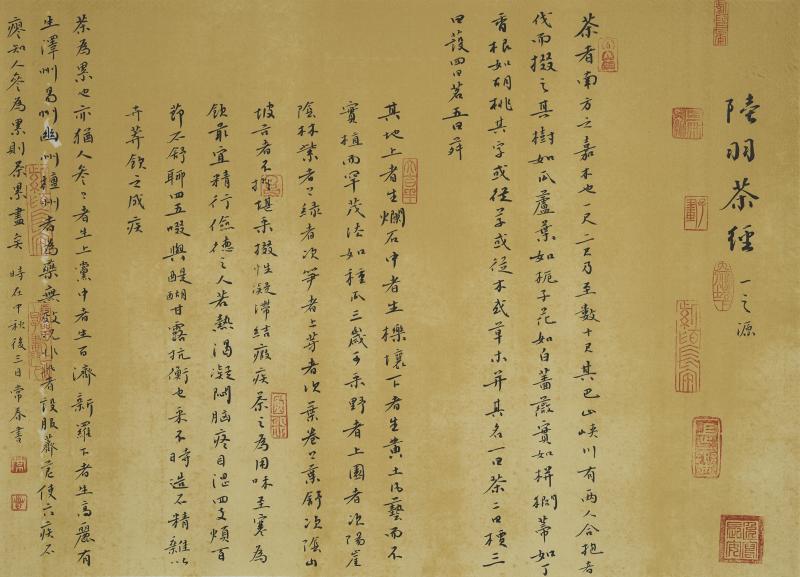 陸羽茶經 一之源
茶者南方之嘉木也一尺二尺乃至數十尺其巴山峽川有兩人合抱者
伐而掇之其樹如瓜蘆葉如梔子花如白薔薇實如栟櫚蒂如丁
香根如胡桃其字或從草或從木或草木并其名一曰茶二曰檟三
曰蔎四曰茗五曰荈
其地上者生爛石中者生櫟壤下者生黃土凡藝而不
實植而罕茂法如種瓜三歲可采野者上園者次陽崖
陰林紫者上綠者次笋者上芽者次葉卷上葉舒次陰山
坡谷者不堪采掇性凝滯結瘕疾茶之為用味至寒為
飲最宜精行儉德之人若熱渴凝悶腦疼目澀四支煩百
節不舒聊四五啜與醍醐甘露抗衡也采不時造不精雜以
卉莽飲之成疾
茶為累也亦猶人參上者生上黨中者生百濟新羅下者生高麗有
生澤州易州幽州檀州者為藥無效況非此者設服薺苨使六疾不
瘳知人參為累則茶累盡矣 時在中秋後三日常春書